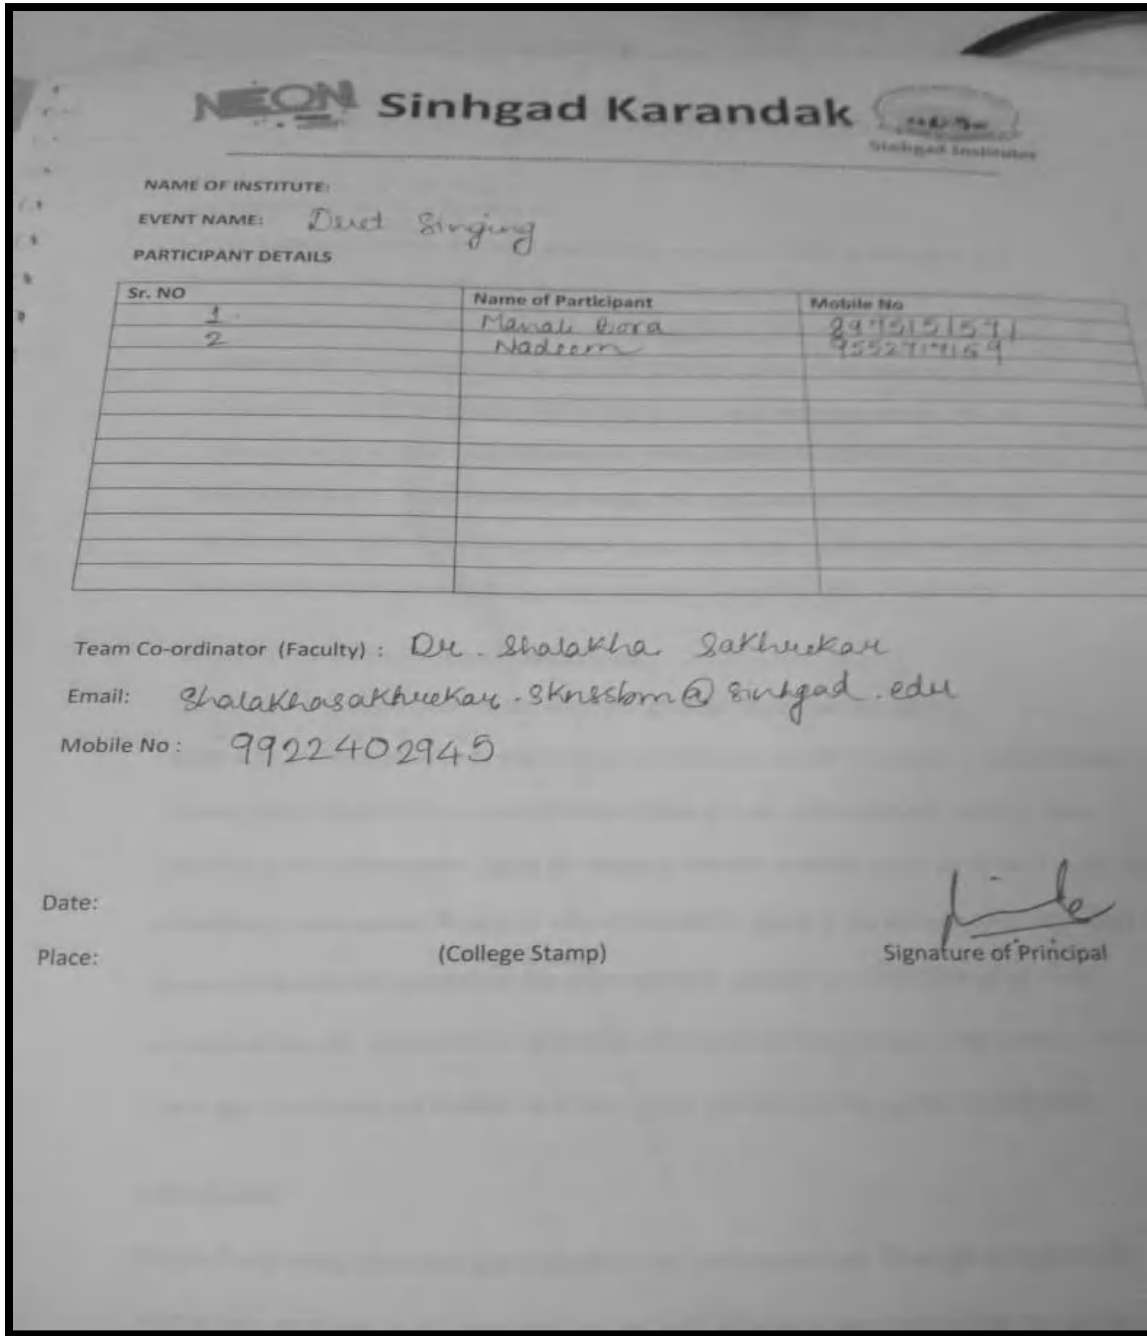 NEON Sinhgad Karandak
Sinhgad Institutes
NAME OF INSTITUTE:
EVENT NAME: Duet Singing
PARTICIPANT DETAILS
Sr. NO Name of Participant Mobile No
1 Manali Bora 8975151571
2 Nadeem
Team Co-ordinator (Faculty) : Dr. Shalakha Sakhrekar
Email: Shalakhasakhrekar.sknssbm@sinhgad.edu
Mobile No : 9922402945
Date:
Place: (College Stamp) Signature of Principal